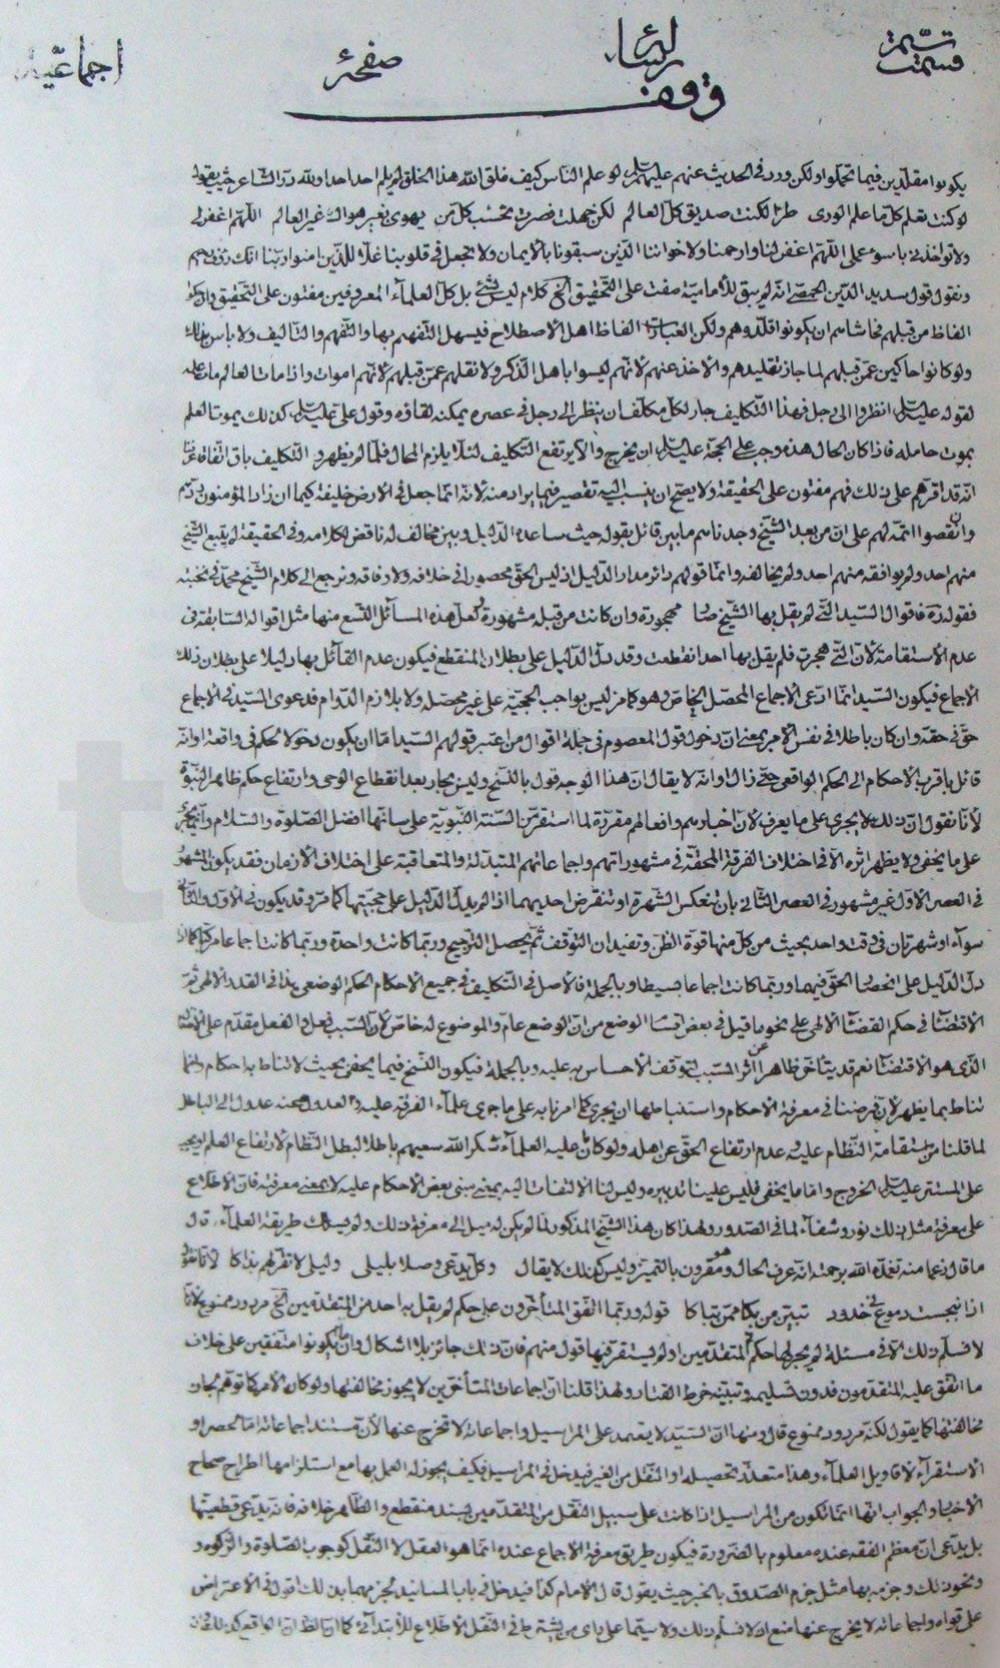 تتمة قسمت
رسالهٔ
صفحهٔ
اجماعيه
وقف
يكونوا مقلدين فيما تحملوا ولكن ورد فى الحديث عنهم لو علم الناس كيف خلق الله هذا الخلق لم يلم احد احدا ولله در الشاعر حيث يقول
لو كنت تعلم كل ما علم الورى طرا لكنت صديق كل العالم لكن جهلت فصرت تحسب كل من يهوى بغير هواك غير العالم اللهم اغفر لى
ولا تؤاخذنى باسوء عملى اللهم اغفر لنا وارحمنا ولاخواننا الذين سبقونا بالايمان ولا تجعل فى قلوبنا غلا للذين امنوا ربنا انك رؤف رحيم
ونقول قول سديد الدين الحمصى انه لم يبق للامامية مفت على التحقيق الخ كلام ليس بشئ بل كل العلماء المعروفين مفتون على التحقيق
الفاظ من قبلهم فحاشاهم ان يكونوا قلدوهم ولكن العبارات الفاظ اهل الاصطلاح فيسهل التفهيم بها والتفهم والتاليف ولا باس بذلك
ولو كانوا حاكين عمن قبلهم لما جاز تقليدهم والاخذ عنهم لانهم ليسوا باهل الذكر ولا نقلهم عمن قبلهم لانهم اموات واذا مات العالم مات علمه
لقوله عليه السلام انظروا الى رجل فهذا التكليف جار لكل مكلف ان ينظر الى رجل فى عصره يمكنه لقاؤه وقول على عليه السلام كذلك يموت العلم
بموت حامله فاذا كان الحال هذه وجب على الحجة عليه السلام ان يخرج والا يرتفع التكليف لئلا يلزم المحال فلما لم يظهر و التكليف باق اتفاقا
انه قد اقرهم على ذلك فهم مفتون على الحقيقة ولا يصح ان ينسب اليه تقصير فيما يراد منه لانه انما جعل فى الارض خليفة كيما ان زاد المؤمنون ردهم
وان نقصوا اتمه لهم على ان من بعد الشيخ وجدناهم ما بين قائل بقوله حيث ساعده الدليل وبين مخالف له ناقض لكلامه وفى الحقيقة لم يتبع الشيخ
منهم احد ولم يوافقه منهم احد ولم يخالفه وانما قولهم دائر مدار الدليل اذ ليس الحق محصورا فى خلافه ولا وفاقه ونرجع الى كلام الشيخ محمد فى نخبته
فقوله ره فاقوال السيد التى لم يقل بها الشيخ مهجورة وان كانت من قبله مشهورة لعل هذه المسائل التسع منها مثل اقواله السابقة فى
عدم الاستقامة لان التى هجرت فلم يقل بها احد انقطعت وقد دل الدليل على بطلان المنقطع فيكون عدم القائل بها دليلا على بطلان ذلك
الاجماع فيكون السيد انما ادعى الاجماع المحصل الخاص وهو كما مر ليس بواجب الحجية على غير محصله ولا بلازم الدوام فدعوى السيد فى الاجماع
حق فى حقه وان كان باطلا فى نفس الامر بمعنى ان دخول قول المعصوم فى جملة اقوال من اعتبر قولهم السيد اما ان يكون دخولا لحكم فى واقعة او انه
قائل باقرب الاحكام الى الحكم الواقعى حتى زال او انه لا يقال ان هذا الوجه قول بالنسخ وليس بجار بعد انقطاع الوحى وارتفاع حكم ظاهر النبوة
لانا نقول ان ذلك لا يجرى على ما يعرف لان اخبارهم وافعالهم مقررة لما استقر من السنة النبوية على سانها افضل الصلوة والسلام
على ما يخفى ولا يظهر اثره الا فى اختلاف الفرقة المحقة فى مشهوراتهم واجماعاتهم المتبدلة والمتعاقبة على اختلاف الازمان فقد يكون المشهور
فى العصر الاول غير مشهور فى العصر الثانى بان تنعكس الشهرة او تنقرض احديهما اذا لم يدل الدليل على حجيتها كما مر وقد يكون فى الاول والثانى
سواء او شهرتان فى وقت واحد بحيث من كل منهما قوة الظن وتفيدان التوقف ثم يحصل الترجيح وربما كانت واحدة وربما كانت اجماعا مركبا
دل الدليل على انحصار الحق فيهما وربما كانت اجماعا بسيطا وبالجملة فالاصل فى التكليف فى جميع الاحكام الحكم الوضعى
الاقتضاء فى حكم القضاء الالهى على نحو ما قيل فى بعض اقسام الوضع من ان الوضع عام والموضوع له خاص لان السبب فعل والفعل مقدم على
الذى هو الاقتضاء نعم قد يتأخر ظاهرا عن اثر السبب لتوقف الاحساس به عليه وبالجملة فيكون النسخ فيما يخفى بحيث لا تناط به احكام وانما
تناط بما يظهر لان فرضنا فى معرفة الاحكام واستنباطها ان يجرى كما امرنا به على ما جرى علماء الفرقة عليه والعدول عنه عدول الى الباطل
لما قلنا من استقامة النظام عليه وعدم ارتفاع الحق عن اهله ولو كان ما عليه العلماء شكر الله سعيهم باطلا لبطل النظام لارتفاع العلم
على المستتر عليه السلام الخروج واما ما يخفى فليس علينا تدبيره وليس لنا الالتفات اليه بمعنى مبنى بعض الاحكام عليه لا بمعنى معرفته فان الاطلاع
على معرفة مثل ذلك نور وشفاء لما فى الصدور ولهذا كان هذا الشيخ المذكور لما لم يكن له ميل الى معرفة ذلك ولم يسلك طريقة العلماء قال
ما قال زعما منه تغمده الله برحمته انه عرف الحال وهو مقرون بالتميز وليس كذلك لا يقال وكل يدعى وصلا بليلى وليلى لا تقر لهم بذاكا لانا نقول
اذا انبجست دموع فى خدود تبين من بكى ممن تباكا قوله وربما اتفق المتأخرون على حكم لم يقل به احد من المتقدمين الخ مردود ممنوع لانا
لا نسلم ذلك الا فى مسئلة لم يجر لها حكم فى المتقدمين او لم يستقر فيها قول منهم فان ذلك جائز بلا اشكال واما ان يكونوا متفقين على خلاف
ما اتفق عليه المتقدمون فدون تسليمه وتبيته خرط القتاد ولهذا قلنا ان اجماعات المتأخرين لا يجوز مخالفتها ولو كان الامر كما توهم لجاز
مخالفتها كما يقول لكنه مردود ممنوع قال ومنها ان السيد لا يعتمد على المراسيل واجماعاته لا تخرج عنها لان مستند اجماعاته اما الحصر او
الاستقراء لاقاويل العلماء وهذا متعذر تحصيله او النقل من الغير فيدخل فى المراسيل فكيف يجوز له العمل بها مع استلزامها اطراح صحاح
الاخبار والجواب انها انما تكون من المراسيل اذا كانت على سبيل النقل من المتقدمين بسند منقطع والظاهر خلافه فانه يدعى قطعيتها
بل يدعى ان معظم الفقه عنده معلوم بالضرورة فيكون طريق معرفة الاجماع عنده انما هو العقل لا النقل كوجوب الصلوة والزكوة و
ونحو ذلك وجزمه بها مثل جزم الصدوق بالخبر حيث يقول قال الامام كذا فيدخل فى باب المسانيد لجزمهما بذلك اقول فى الاعتراض
على قوله واجماعاته لا يخرج عنها منع اذ لا نسلم ذلك ولا سيما على راى من يشترط فى النقل الاطلاع للابتدائى